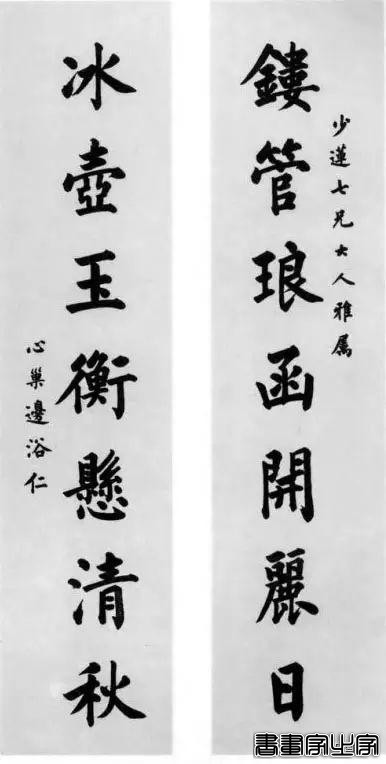 少蓮七兄大人雅屬
鏤管琅函開麗日
冰壺玉衡懸清秋
心巢邊浴仁
書畫家之家